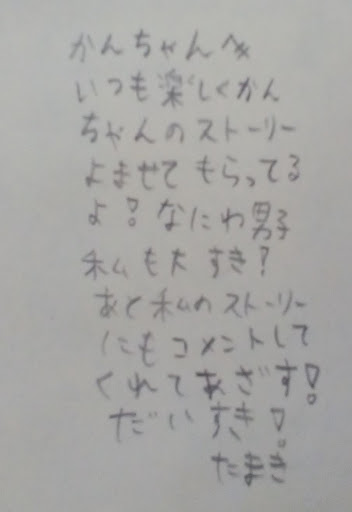 かんちゃんへ
いつも楽しくかん
ちゃんのストーリー
よませてもらってる
よ!なにわ男子
私も大すき?
あと私のストーリー
にもコメントして
くれてあざす!
だいすき!
たまき